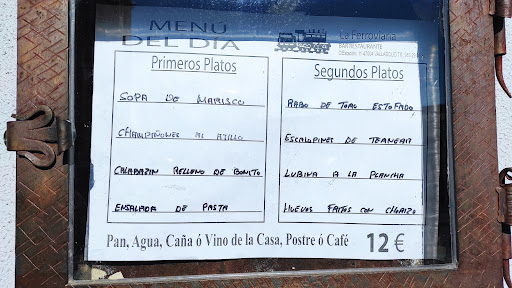 MENÚ
DEL DÍA
La Ferroviaria
BAR RESTAURANTE
Primeros Platos
SOPA DE MARISCO
CHAMPIÑONES AL AJILLO
CALABAZIN RELLENO DE BONITO
ENSALADA DE PASTA
Segundos Platos
RABO DE TORO ESTOFADO
ESCALOPINES DE TERNERA
LUBINA A LA PLANCHA
HUEVOS FRITOS CON CHORIZO
Pan, Agua, Caña ó Vino de la Casa, Postre ó Café 12 €